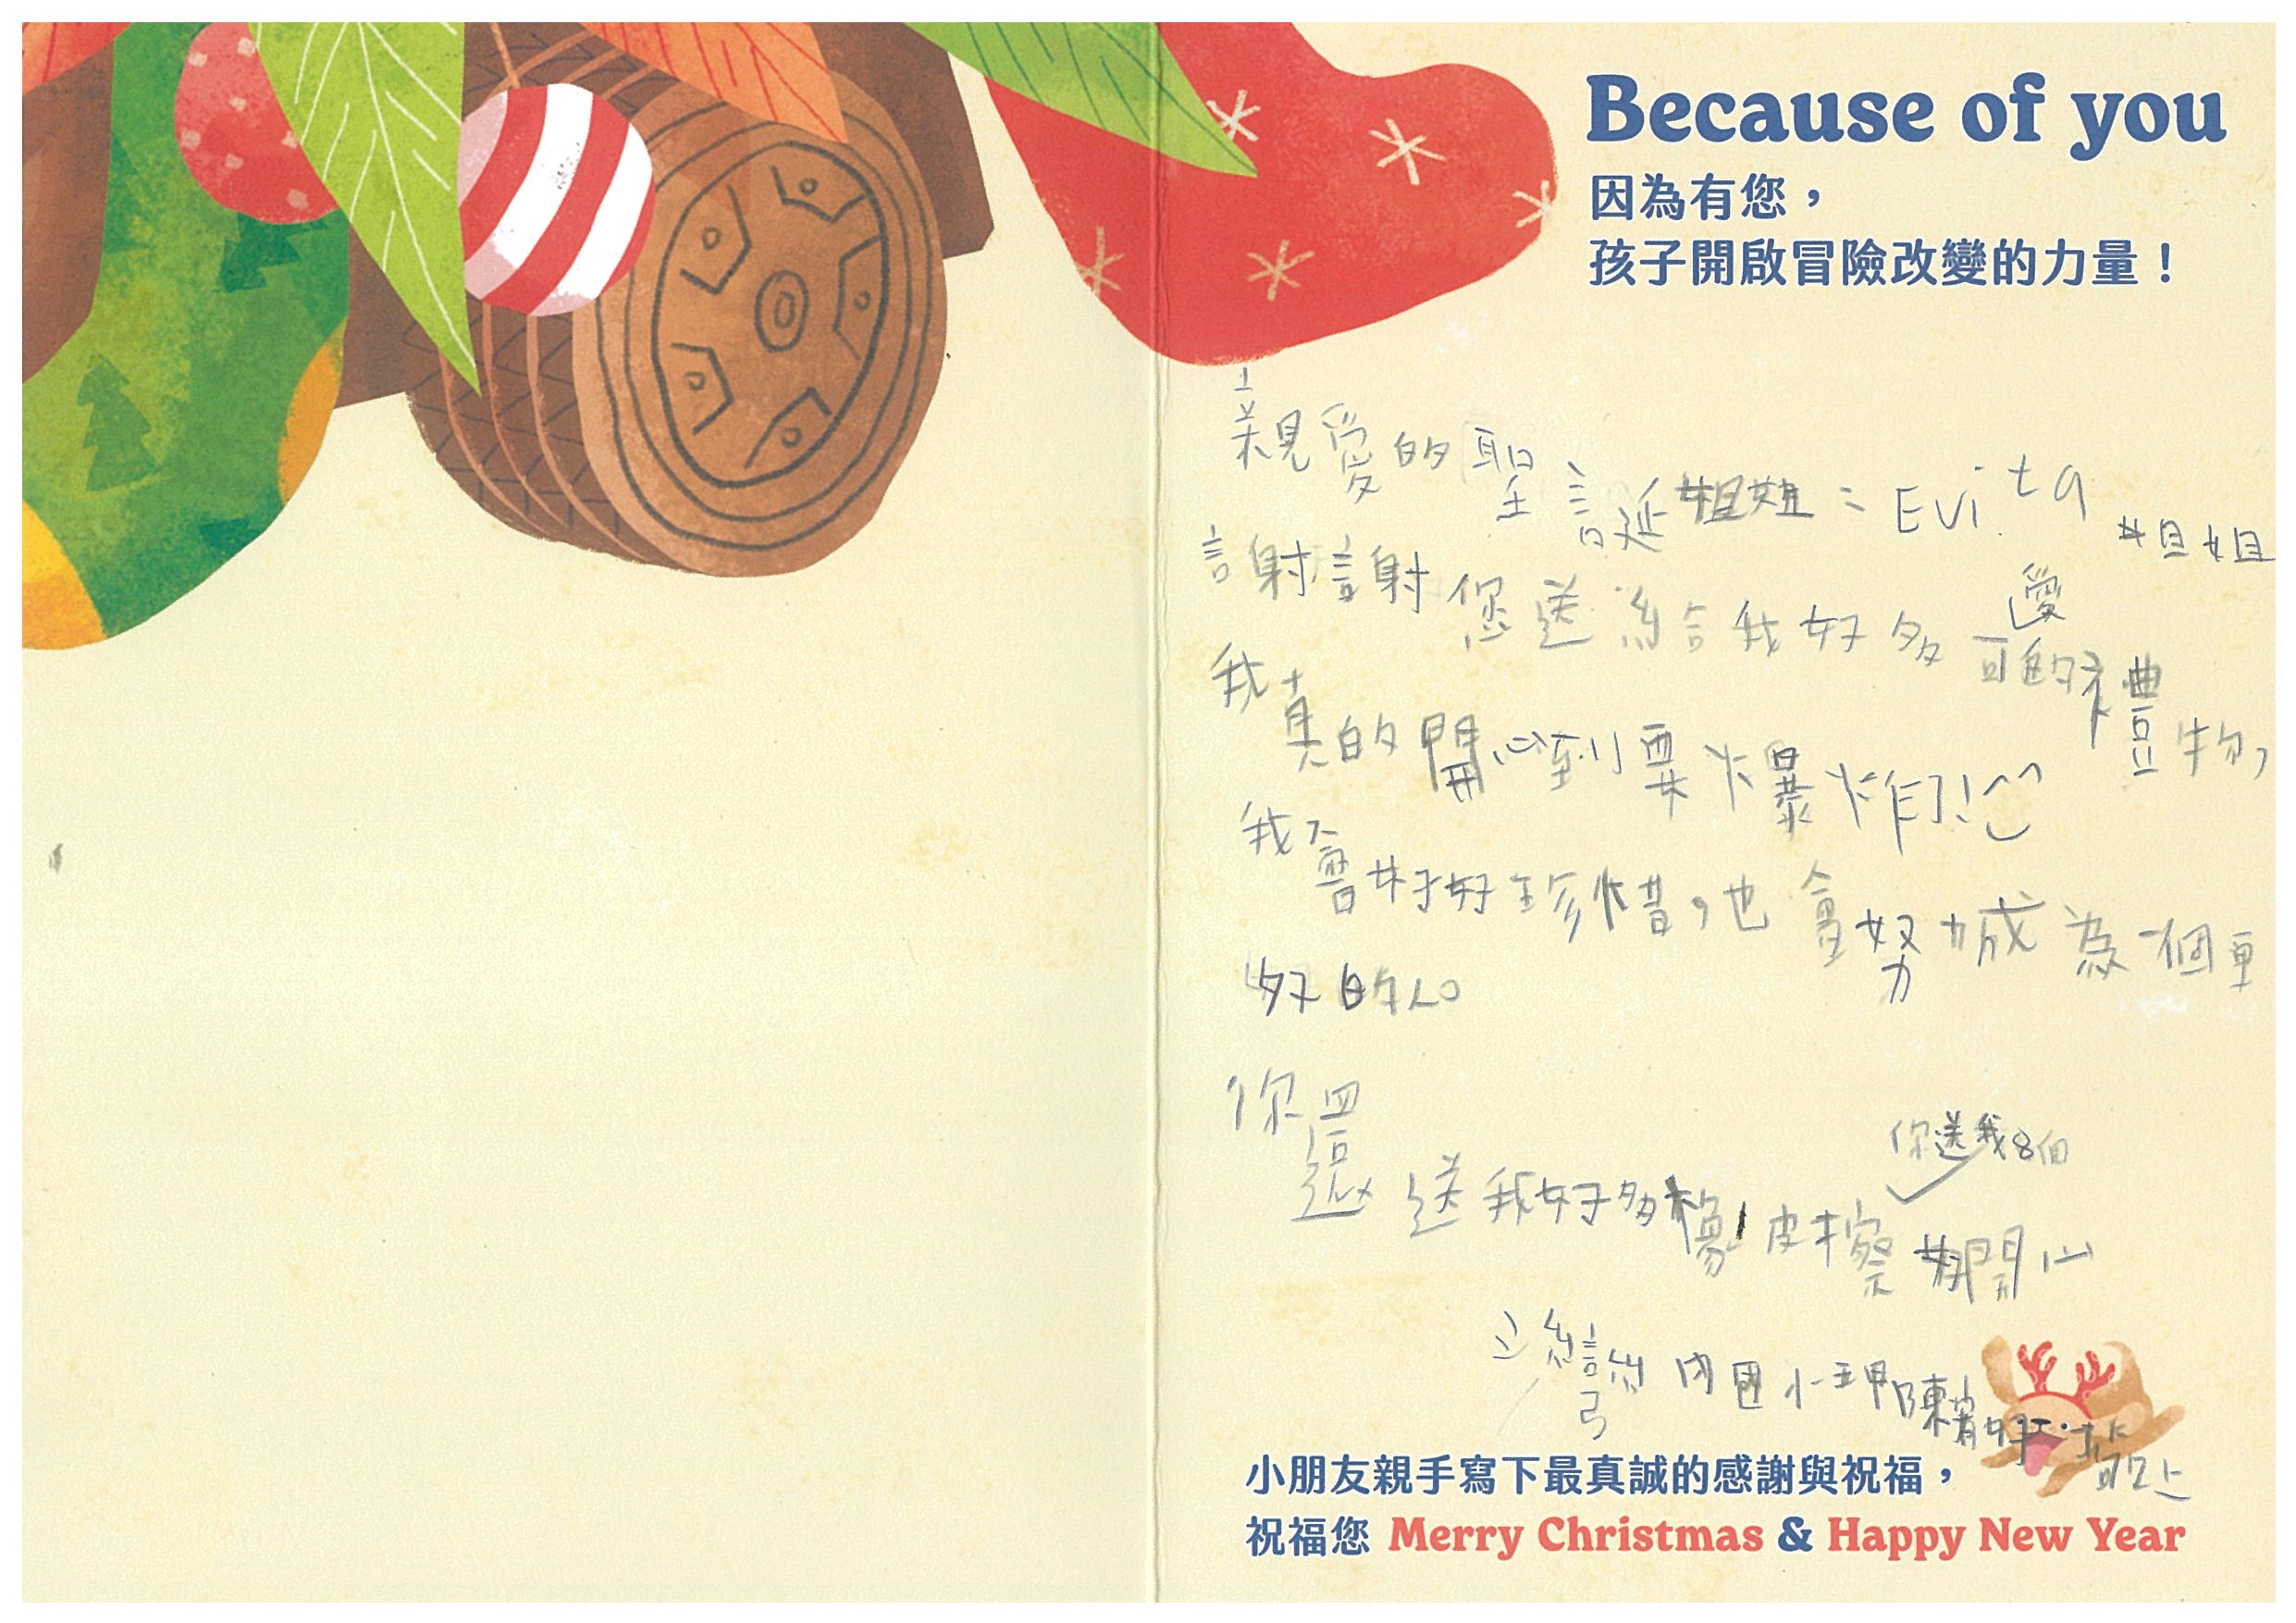 Because of you
因為有您，
孩子開啟冒險改變的力量！
親愛的聖誕姐姐：Evita姐姐
謝謝您送給我好多可愛的禮物，
我真的開心到要爆炸了!
我會好好珍惜，也會努力成為一個更
好的人。
你還送我好多橡皮擦 好開心
你送我8個
內國小 陳
小朋友親手寫下最真誠的感謝與祝福，
祝福您 Merry Christmas & Happy New Year